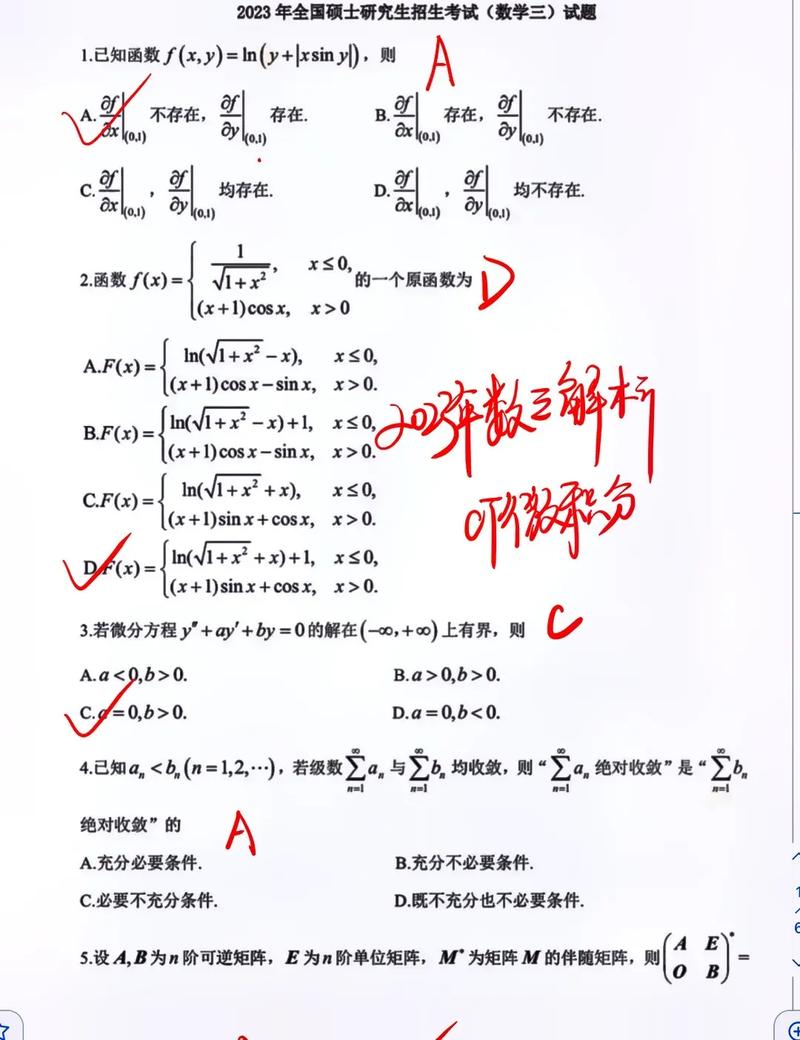 2023 年全国硕士研究生招生考试（数学三）试题
1.已知函数 f(x,y)=ln(y+|x sin y|)，则 A
A. ∂f/∂x|(0,1) 不存在，∂f/∂y|(0,1) 存在. B. ∂f/∂x|(0,1) 存在，∂f/∂y|(0,1) 不存在.
C. ∂f/∂x|(0,1)，∂f/∂y|(0,1) 均存在. D. ∂f/∂x|(0,1)，∂f/∂y|(0,1) 均不存在.
2.函数 f(x)={1/√(1+x²), x≤0, (x+1)cos x, x>0 的一个原函数为 D
A.F(x)={ln(√(1+x²)−x), x≤0, (x+1)cos x−sin x, x>0.
B.F(x)={ln(√(1+x²)−x)+1, x≤0, (x+1)cos x−sin x, x>0.
2023年数三解析
C.F(x)={ln(√(1+x²)+x), x≤0, (x+1)sin x+cos x, x>0.
微积分
D.F(x)={ln(√(1+x²)+x)+1, x≤0, (x+1)sin x+cos x, x>0.
3.若微分方程 y″+ay′+by=0 的解在(−∞,+∞)上有界，则 C
A.a<0,b>0. B.a>0,b>0.
C.a=0,b>0. D.a=0,b<0.
4.已知 aₙ<bₙ(n=1,2,⋯)，若级数 ∑(n=1→∞) aₙ 与 ∑(n=1→∞) bₙ 均收敛，则“∑(n=1→∞) aₙ 绝对收敛”是“∑(n=1→∞) bₙ
绝对收敛”的 A
A.充分必要条件. B.充分不必要条件.
C.必要不充分条件. D.既不充分也不必要条件.
5.设 A,B 为 n 阶可逆矩阵，E 为 n 阶单位矩阵，M* 为矩阵 M 的伴随矩阵，则 (A E; O B)* =